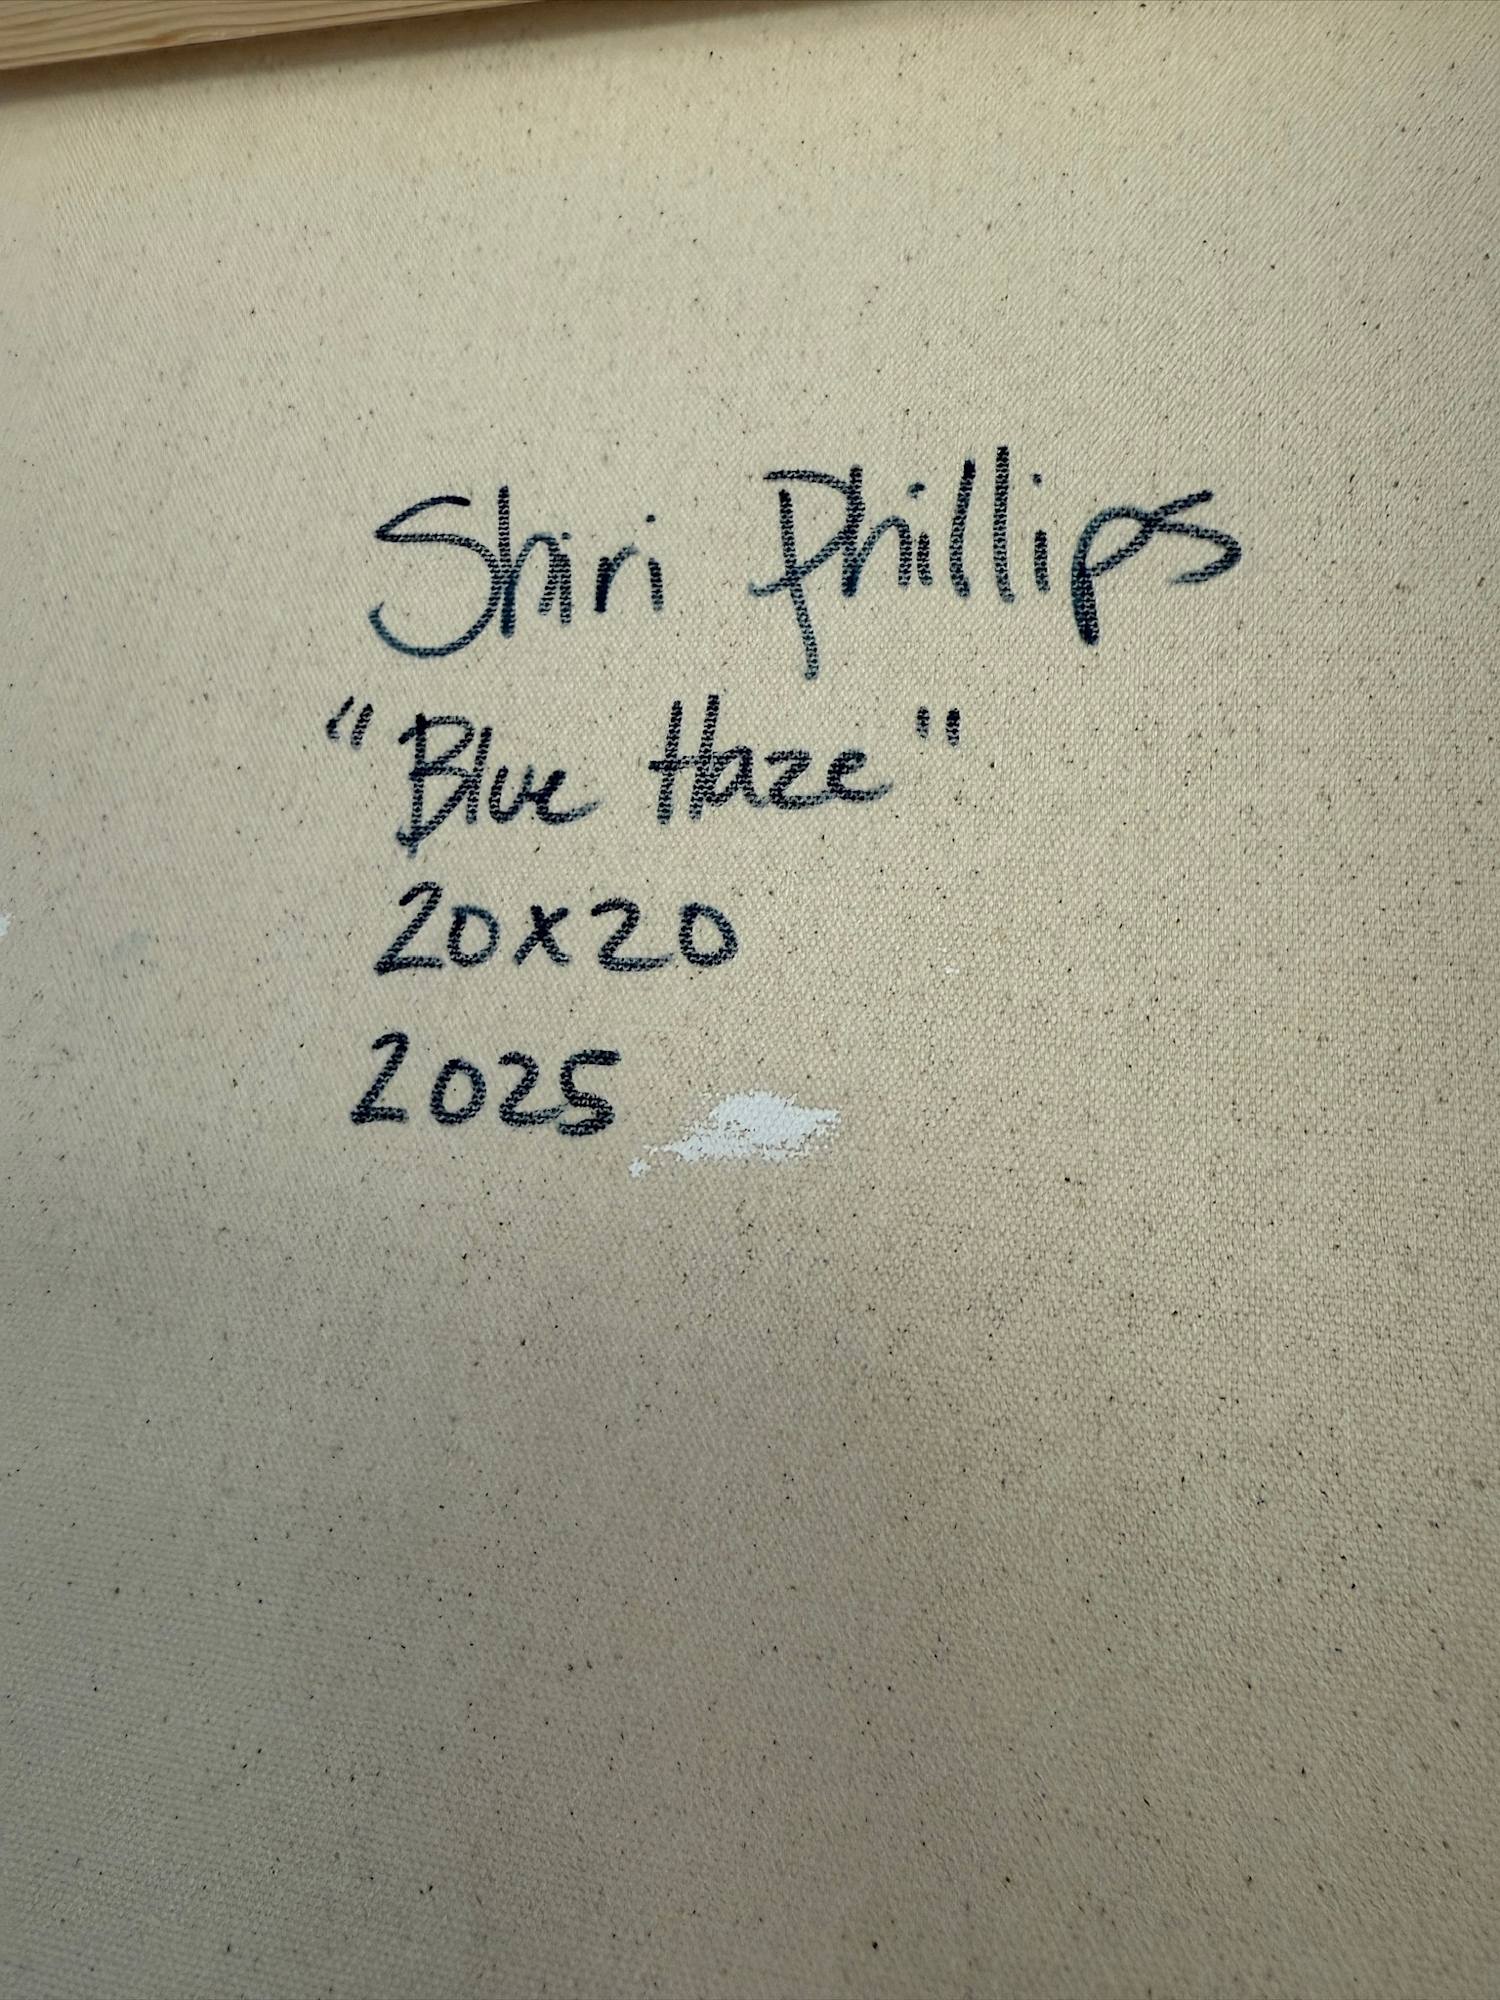 Shiri Phillips
"Blue Haze"
20x20
2025